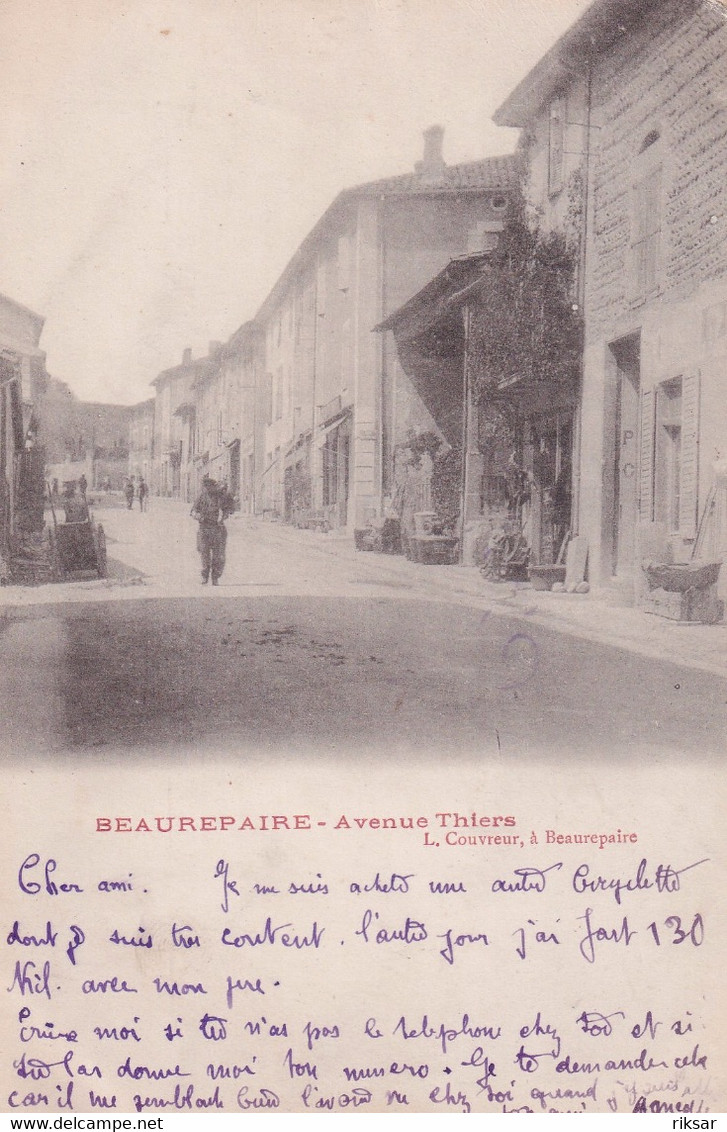 BEAUREPAIRE - Avenue Thiers
L. Couvreur, à Beaurepaire
Cher ami. Je me suis acheté une autre bicyclette
dont je suis très content. l'autre jour j'ai fait 130
Kil. avec mon père.
Ecris moi si tu n'as pas le telephone chez toi et si
tu l'as donne moi ton numero. Je te demande cela
car il me semblait bien l'avoir vu chez toi quand j'y suis allé